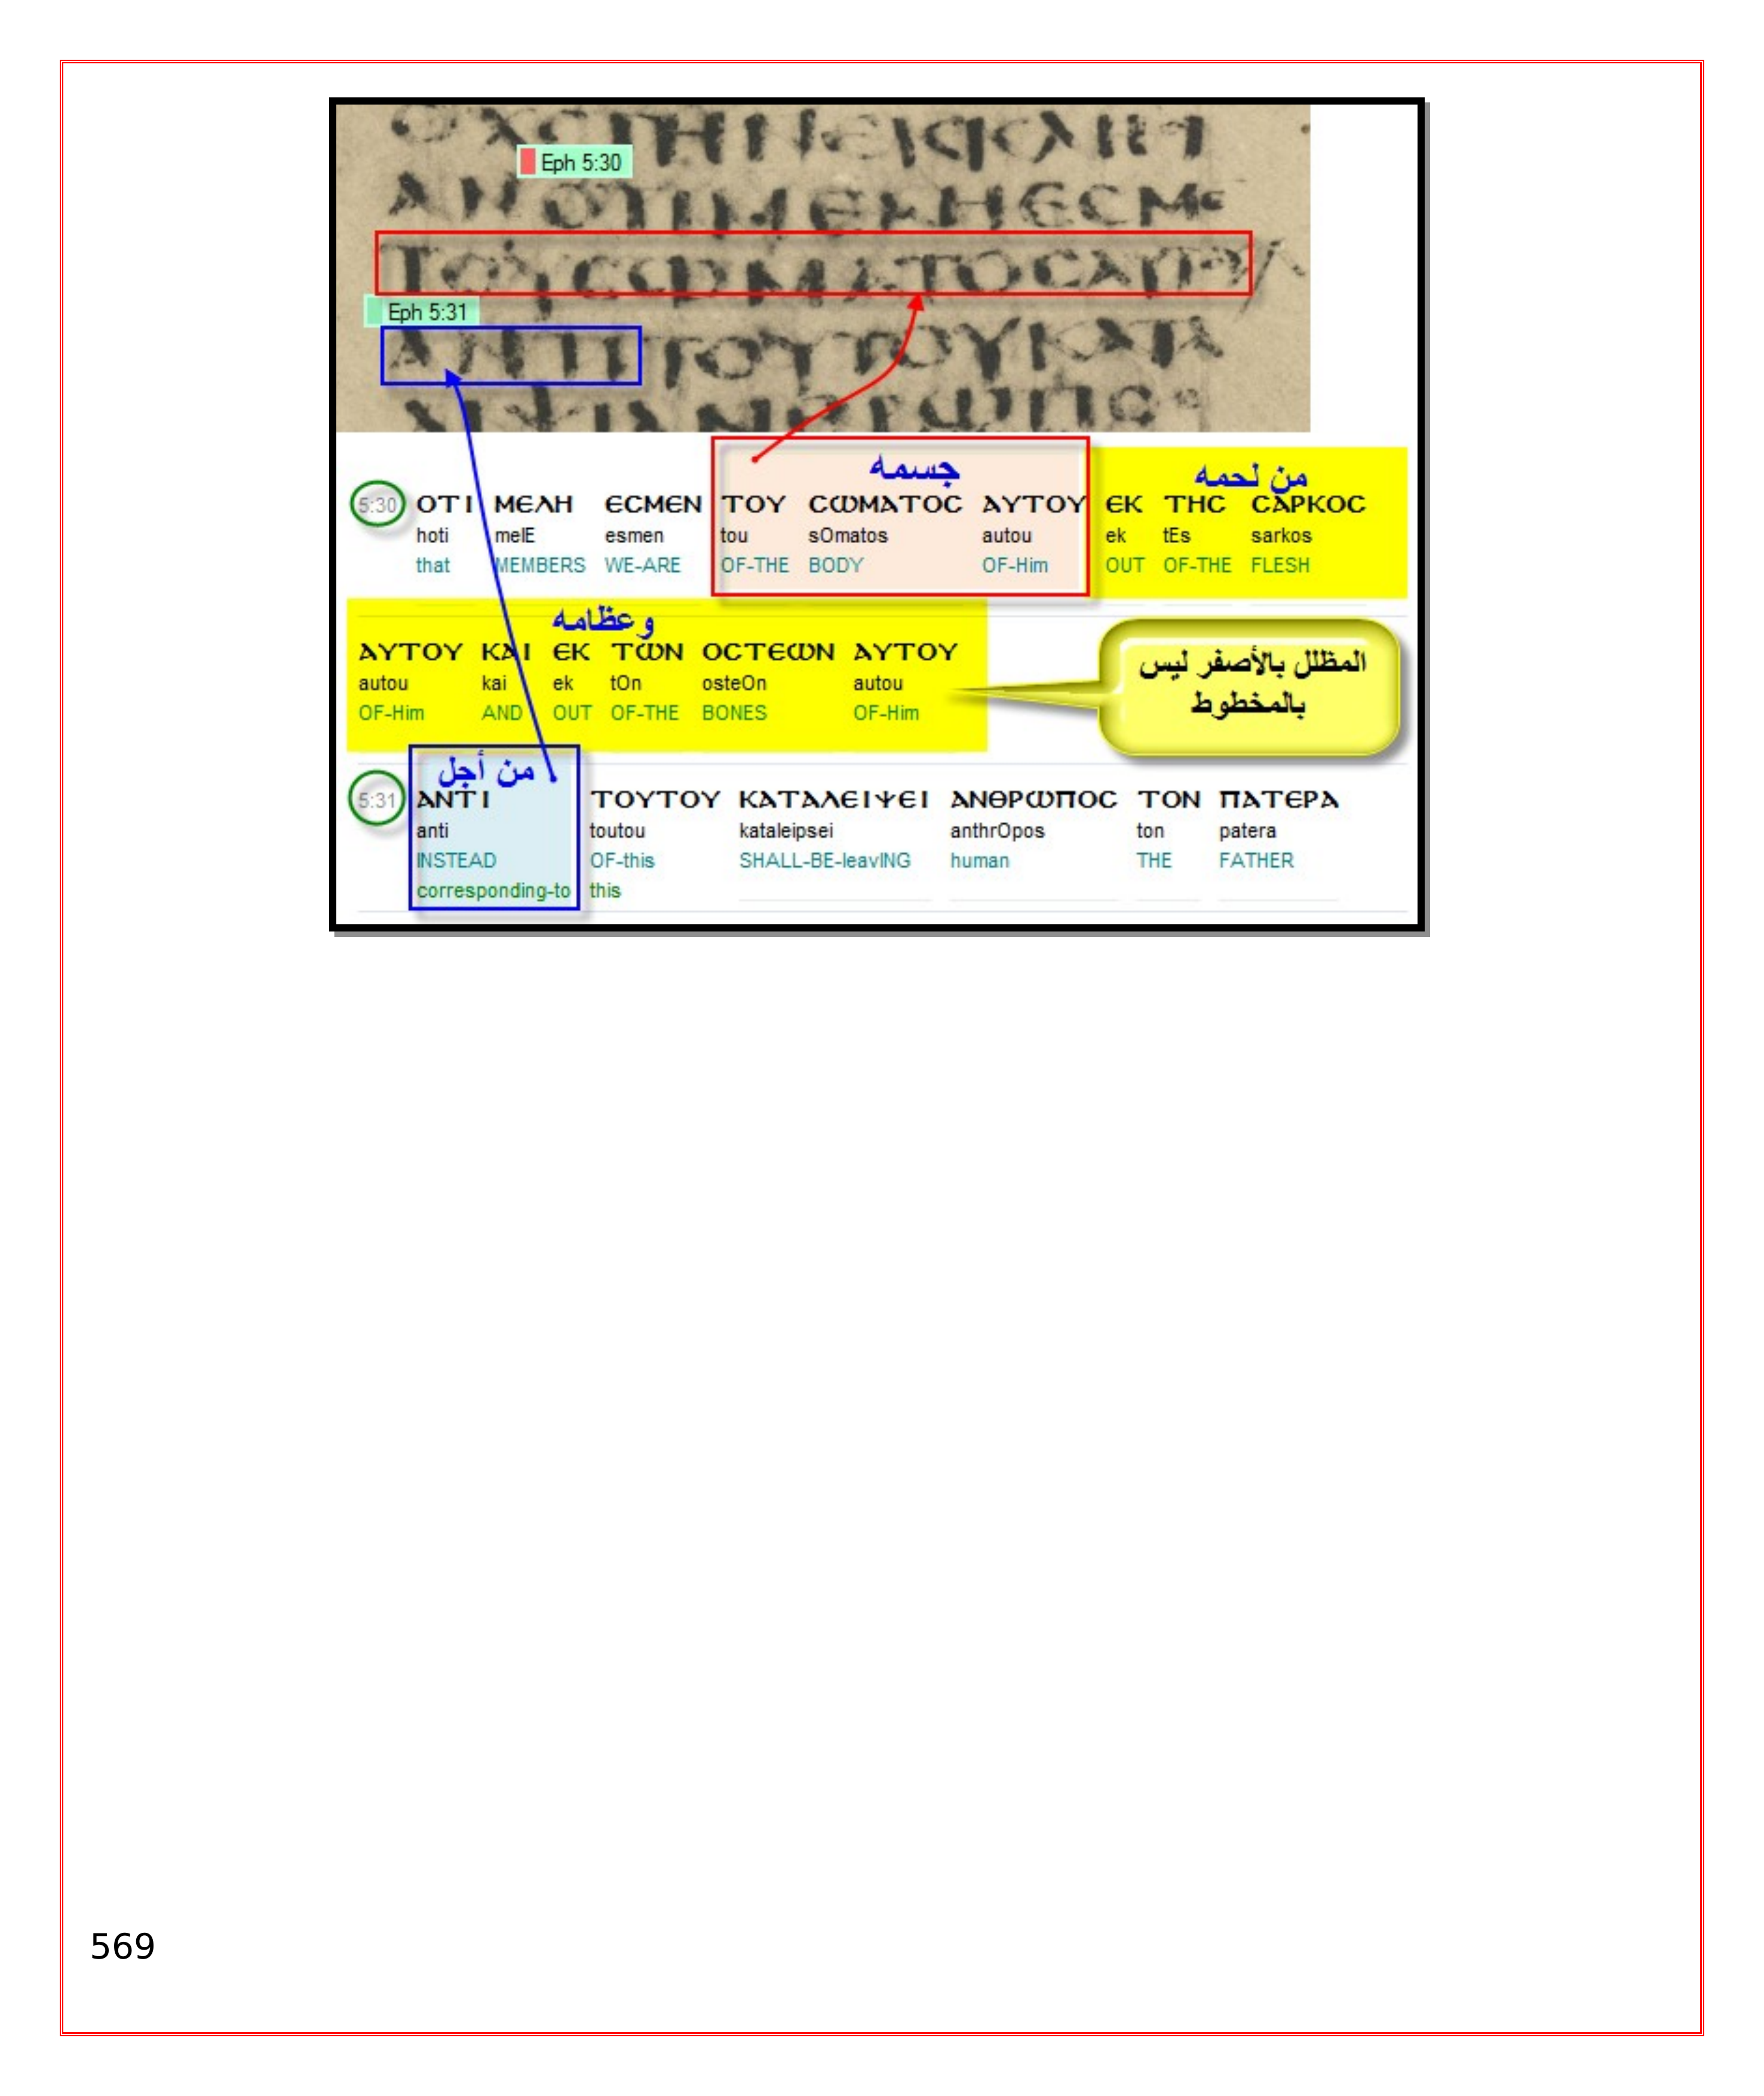 Eph 5:30
ΑΝΟΤΙΜΕΛΗΕCΜΕ
ΤΟΥCΩΜΑΤΟCΑΥΤΟΥ
Eph 5:31
ΑΝΤΙΤΟΥΤΟΥΚΑΤΑ
جسمه من لحمه
5:30 ΟΤΙ ΜΕΛΗ ЄCΜЄΝ ΤΟΥ CΩΜΑΤΟC ΑΥΤΟΥ ЄΚ ΤΗC CΑΡΚΟC
hoti melE esmen tou sOmatos autou ek tEs sarkos
that MEMBERS WE-ARE OF-THE BODY OF-Him OUT OF-THE FLESH
وعظامه
ΑΥΤΟΥ ΚΑΙ ЄΚ ΤΩΝ ΟCΤЄΩΝ ΑΥΤΟΥ
autou kai ek tOn osteOn autou
OF-Him AND OUT OF-THE BONES OF-Him
المظلل بالأصفر ليس
بالمخطوط
من أجل
5:31 ΑΝΤΙ ΤΟΥΤΟΥ ΚΑΤΑΛЄΙΨЄΙ ΑΝΘΡΩΠΟC ΤΟΝ ΠΑΤЄΡΑ
anti toutou kataleipsei anthrOpos ton patera
INSTEAD OF-this SHALL-BE-leavING human THE FATHER
corresponding-to this
569